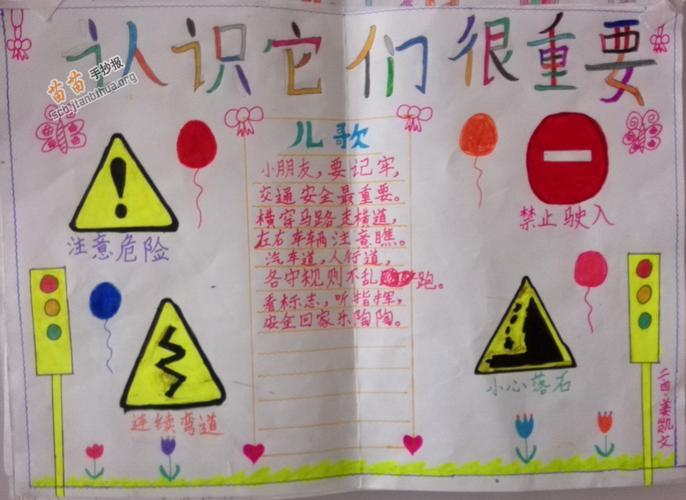 认识它们很重要
苗苗手抄报
Scb.jianbihua.org
儿歌
小朋友，要记牢，
交通安全最重要。
横穿马路走横道，
左右车辆注意瞧。
汽车道，人行道，
各守规则不乱跑。
看标志，听指挥，
安全回家乐陶陶。
注意危险
禁止驶入
连续弯道
小心落石
二.四.姜凯文